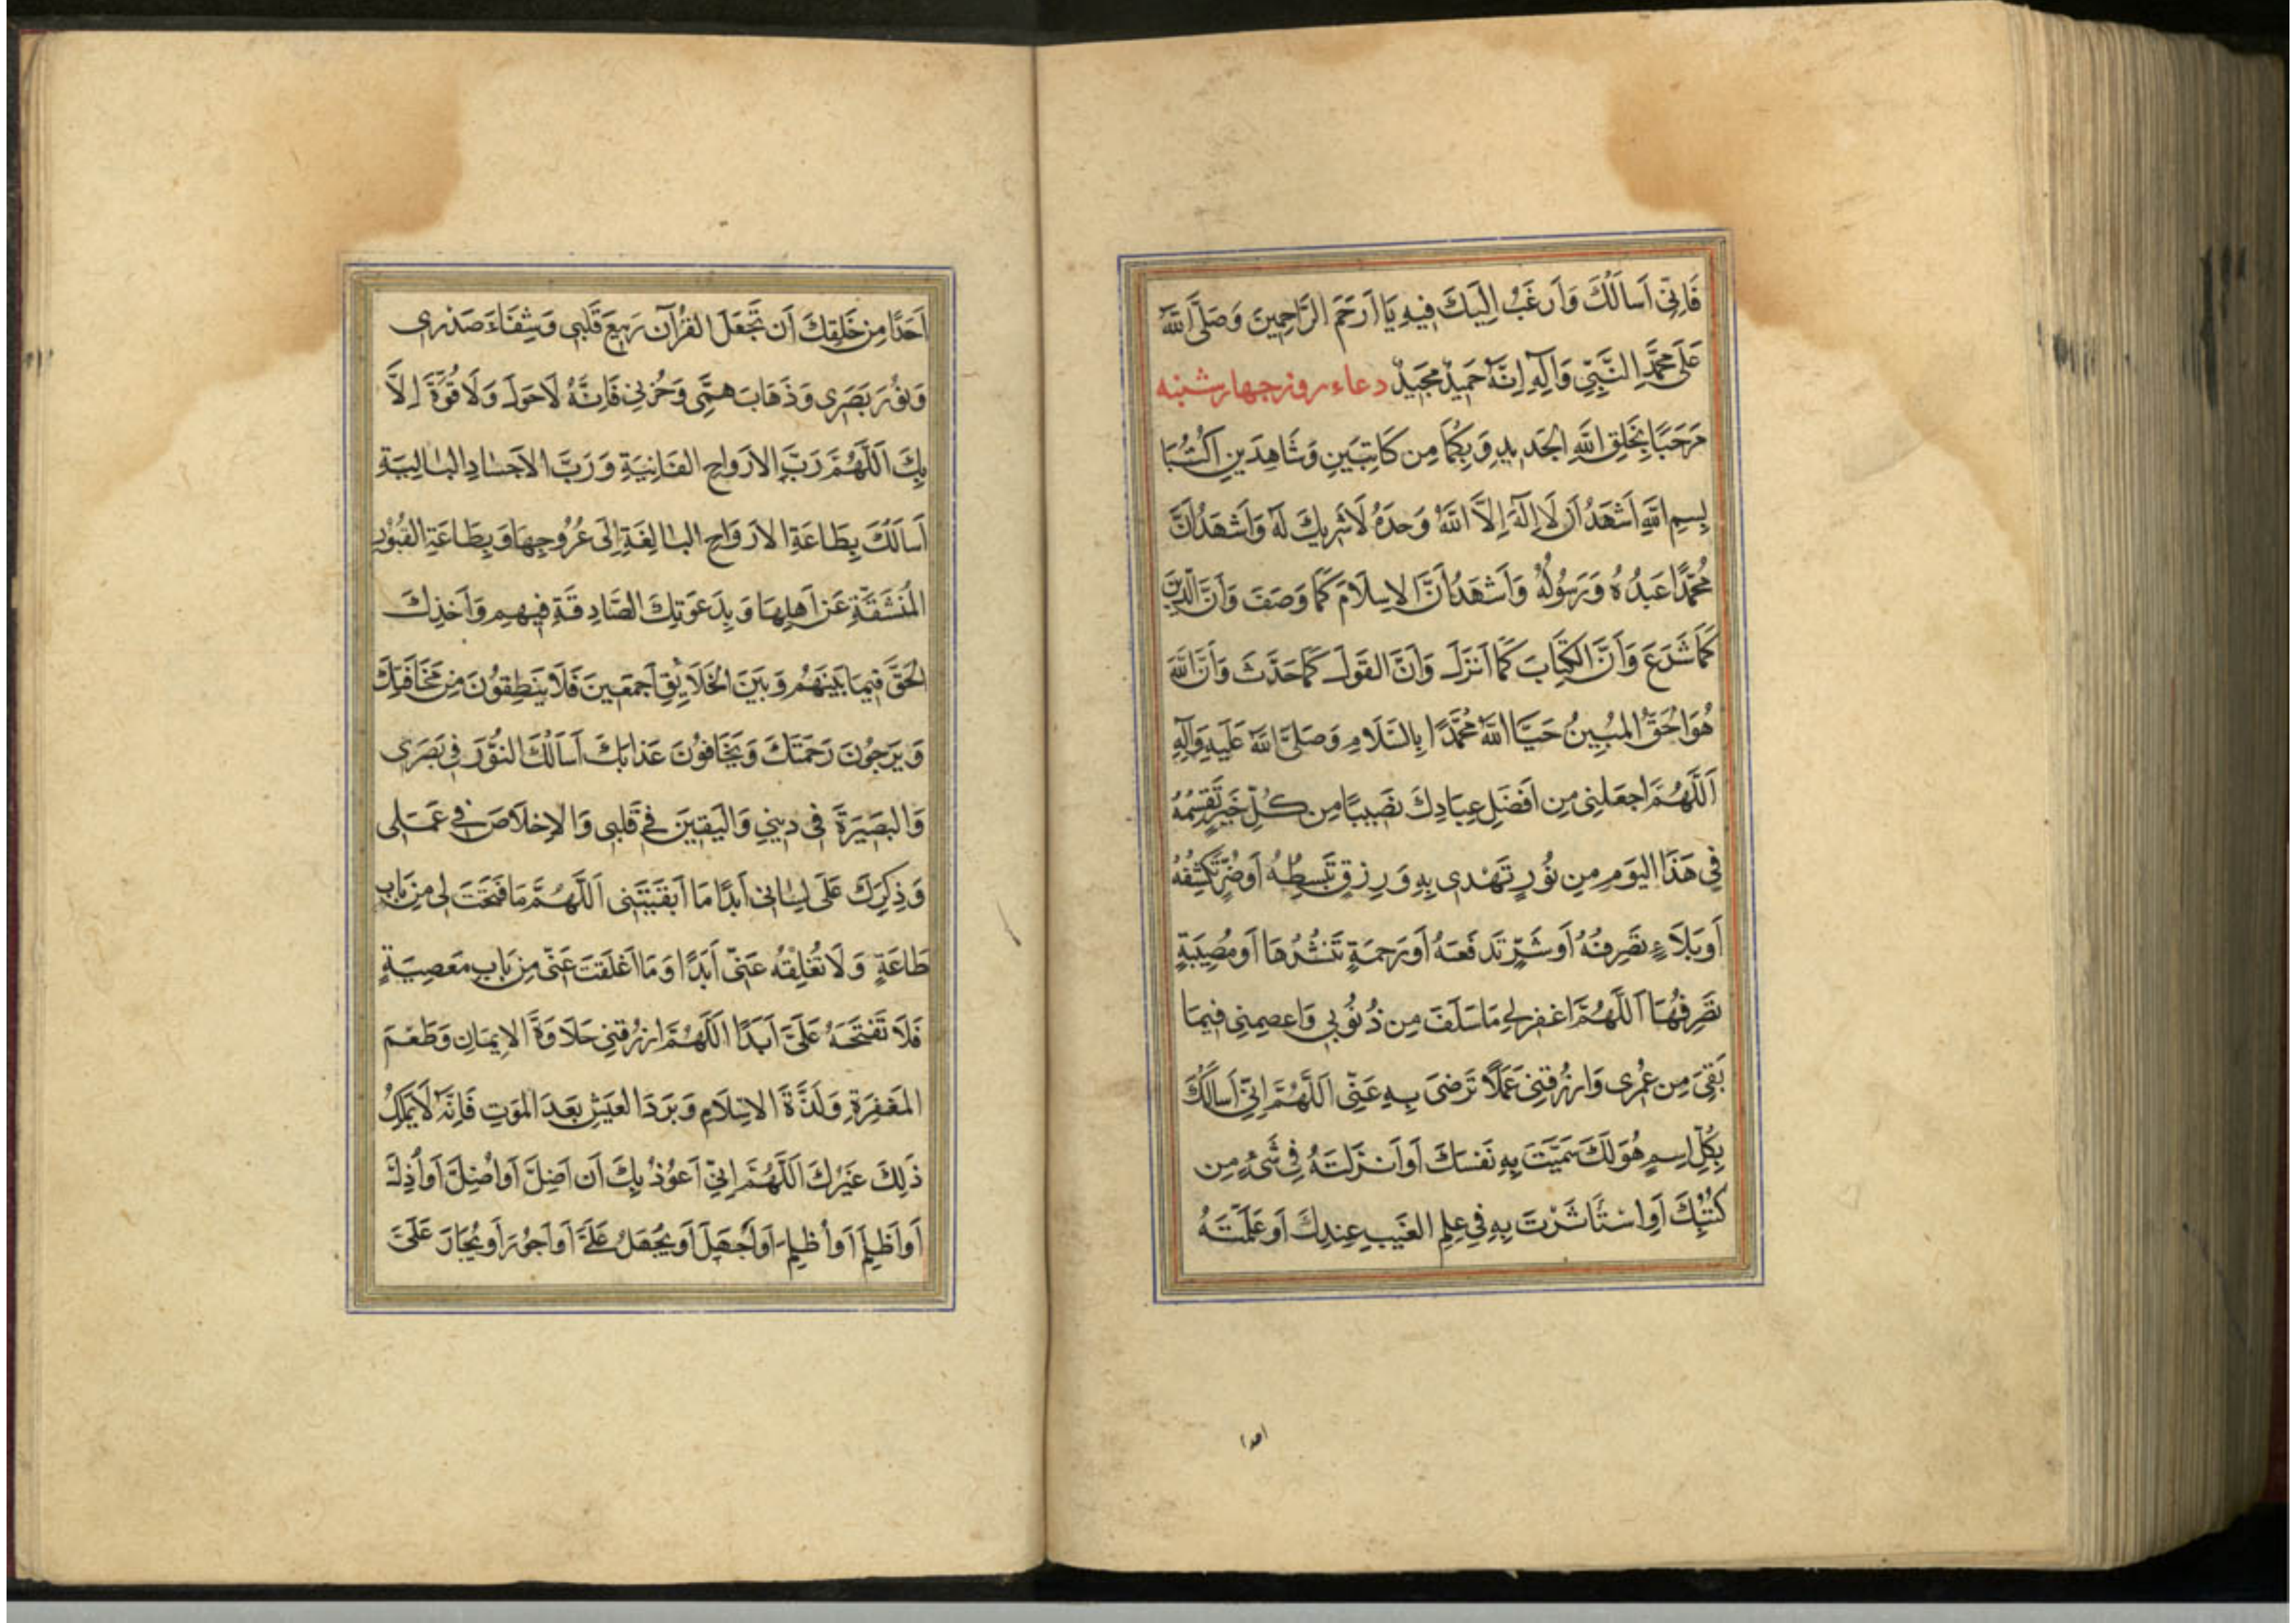 فَاِنّی اَسالُكَ وَاَرغَبُ اِلَیكَ فیهِ یَا اَرحَمَ الرَّاحِمینَ وَصَلَّی اللّٰهُ
عَلَی مُحَمَّدٍ النَّبِیِّ وَآلِهِ اِنَّهُ حَمیدٌ مَجیدٌ دعاء روز چهارشنبه
مَرحَبًا بِخَلقِ اللّٰهِ الجَدیدِ وَبِکُمَا مِن کَاتِبَینِ وَشَاهِدَینِ اُکتُبَا
بِسمِ اللّٰهِ اَشهَدُ اَن لَا اِلٰهَ اِلاَّ اللّٰهُ وَحدَهُ لَا شَریكَ لَهُ وَاَشهَدُ اَنَّ
مُحَمَّدًا عَبدُهُ وَرَسُولُهُ وَاَشهَدُ اَنَّ الاِسلَامَ کَمَا وَصَفَ وَاَنَّ الدّینَ
کَمَا شَرَعَ وَاَنَّ الکِتَابَ کَمَا اَنزَلَ وَاَنَّ القَولَ کَمَا حَدَّثَ وَاَنَّ اللّٰهَ
هُوَ الحَقُّ المُبینُ حَیَّا اللّٰهُ مُحَمَّدًا بِالسَّلَامِ وَصَلَّی اللّٰهُ عَلَیهِ وَآلِهِ
اَللّٰهُمَّ اجعَلنی مِن اَفضَلِ عِبَادِكَ نَصیبًا مِن کُلِّ خَیرٍ تَقسِمُهُ
فی هَذَا الیَومِ مِن نُورٍ تَهْدی بِهِ وَرِزقٍ تَبسِطُهُ اَو ضُرٍّ تَکشِفُهُ
اَو بَلَاءٍ تَصرِفُهُ اَو شَرٍّ تَدفَعَهُ اَو رَحمَةٍ تَنشُرُهَا اَو مُصیبَةٍ
تَصرِفُهَا اَللّٰهُمَّ اغفِرلی مَا سَلَفَ مِن ذُنُوبی وَاعصِمنی فیمَا
بَقِیَ مِن عُمُری وَارزُقنی عَمَلًا تَرضَی بِهِ عَنّی اَللّٰهُمَّ اِنّی اَسالُكَ
بِکُلِّ اِسمٍ هُوَ لَكَ سَمَّیتَ بِهِ نَفسَكَ اَو اَنزَلتَهُ فی شَیءٍ مِن
کُتُبِكَ اَوِ اسْتَاثَرْتَ بِهِ فی عِلمِ الغَیبِ عِندِكَ اَو عَلَّمتَهُ
احدا
اَحَدًا مِن خَلقِكَ اَن تَجعَلَ القُرآنَ رَبیعَ قَلبی وَشِفَاءَ صَدْری
وَنُورَ بَصَری وَذَهَابَ هَمّی وَحُزنی فَاِنَّهُ لَا حَولَ وَلَا قُوَّةَ اِلاَّ
بِكَ اَللّٰهُمَّ رَبَّ الاَروَاحِ الفَانِیَةِ وَرَبَّ الاَجسَادِ البَالِیَةِ
اَسَالُكَ بِطَاعَةِ الاَروَاحِ البَالِغَةِ اِلَی عُرُوجِهَا وَبِطَاعَةِ القُبُورِ
المُنشَقَّةِ عَن اَهلِهَا وَبِدَعوَتِكَ الصَّادِقَةِ فیهِم وَاَخذِكَ
الحَقَّ فیمَا بَینَهُم وَبَینَ الخَلَایِقِ اَجمَعینَ فَلَا یَنطِقُونَ مِن مَخَافَتِكَ
وَیَرجُونَ رَحمَتَكَ وَیَخَافُونَ عَذابَكَ اَسَالُكَ النُّورَ فی بَصَری
وَالبَصیرَةَ فی دینی وَالیَقینَ فی قَلبی وَالاِخلَاصَ فی عَمَلی
وَذِکرَكَ عَلَی لِسَانی اَبَدًا مَا اَبقَیتَنی اَللّٰهُمَّ مَا فَتَحتَ لی مِن بَابِ
طَاعَةٍ وَلَا تُغلِقهُ عَنّی اَبَدًا وَمَا اَغلَقتَ عَنّی مِن بَابِ مَعصِیَةٍ
فَلَا تَفتَحَهُ عَلَیَّ اَبَدًا اَللّٰهُمَّ ارزُقنی حَلَاوَةَ الاِیمَانِ وَطَعمَ
المَغفِرَةِ وَلَذَّةَ الاِسلَامِ وَبَردَ العَیشِ بَعدَ المَوتِ فَاِنَّهُ لَا یَملِكُ
ذَلِكَ غَیرُكَ اَللّٰهُمَّ اِنّی اَعُوذُ بِكَ اَن اَضِلَّ اَو اُضِلَّ اَو اُذِلَّ
اَو اَظلِمَ اَو اُظلِمَ اَو اَجهَلَ اَو یُجهَلُ عَلَیَّ اَو اَجُورَ اَو یُجَارَ عَلَیَّ